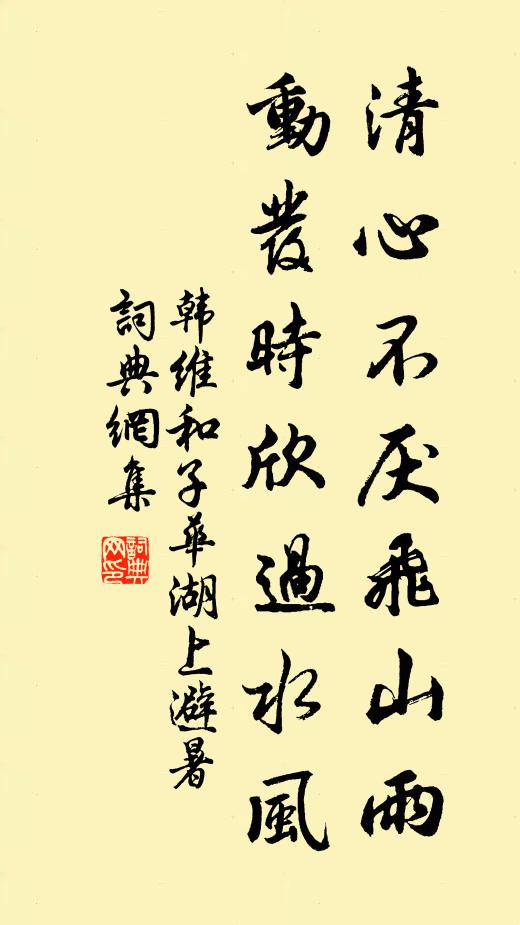 清心不厌飛山雨
動發時欣過水風
韩維和子華湖上避暑
詞典網集
詞典
网印